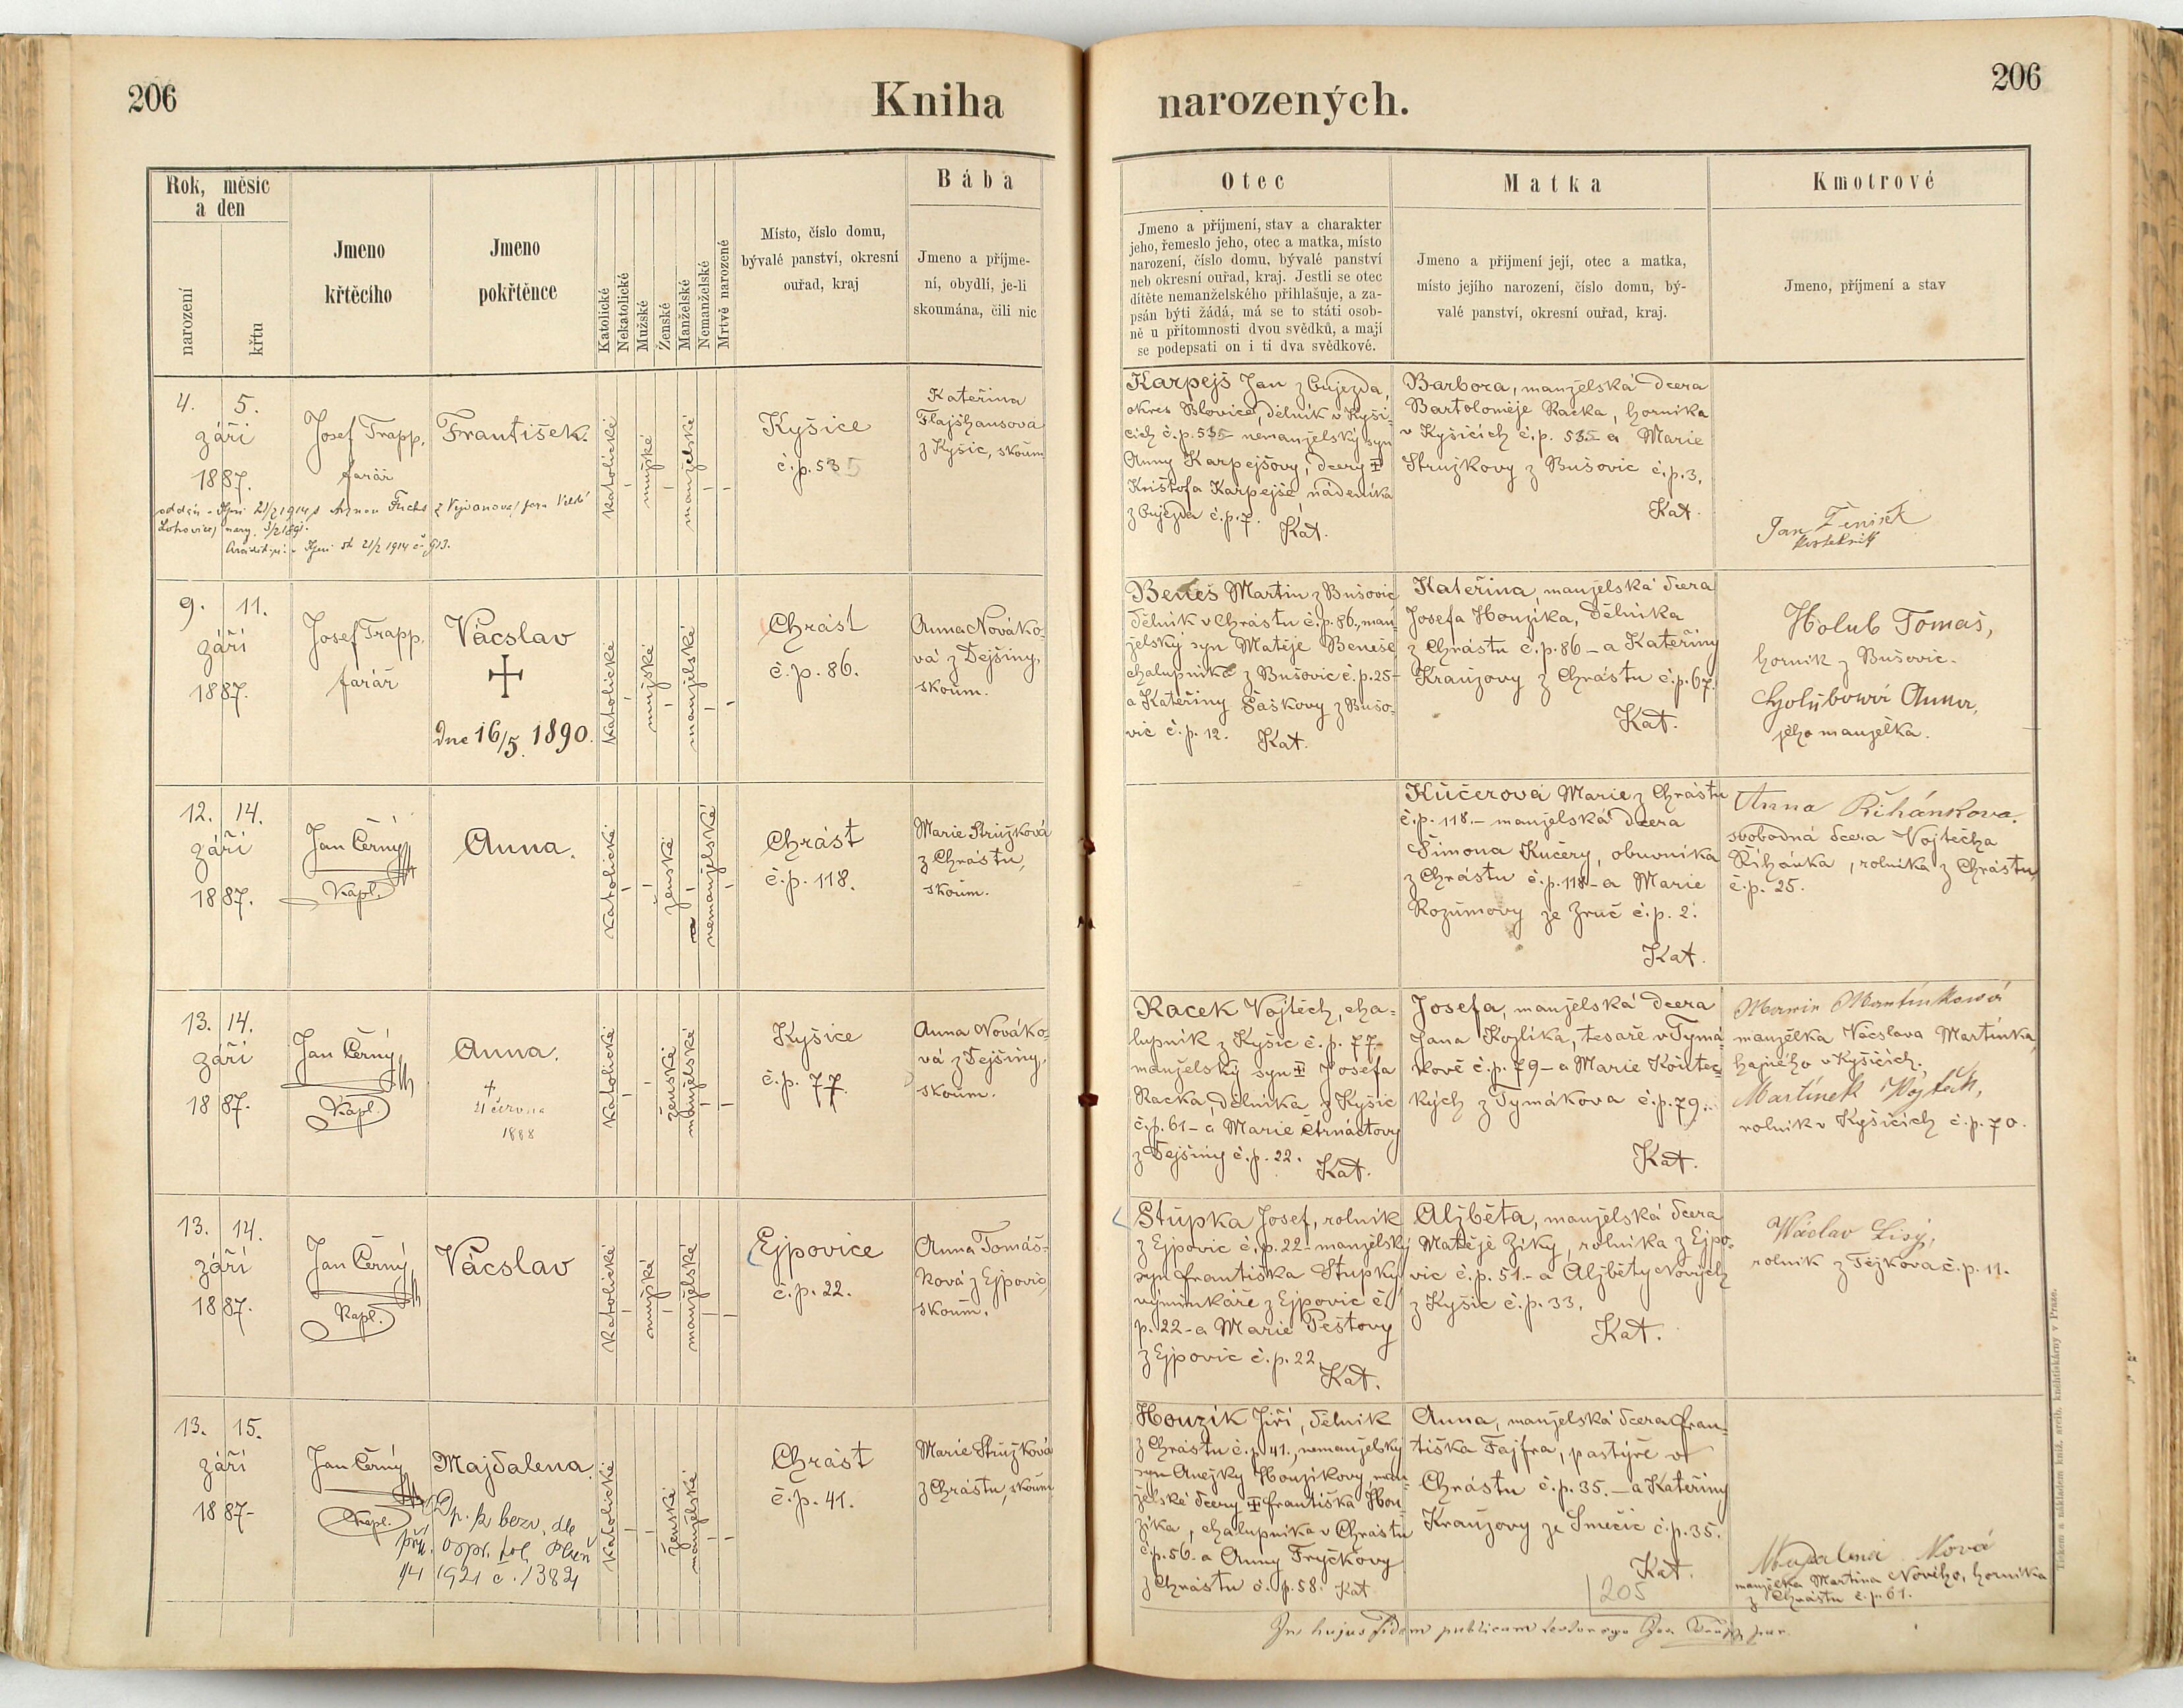 206
Kniha
narozených.
206
Rok, měsíc
a den
narození
křtu
Jmeno
křtěcího
Jmeno
pokřtěnce
Katolické
Nekatolické
Mužské
Ženské
Manželské
Nemanželské
Mrtvě narozené
Místo, číslo domu,
bývalé panství, okresní
ouřad, kraj
Bába
Jmeno a příjme-
ní, obydlí, je-li
skoumána, čili nic
Otec
Jmeno a příjmení, stav a charakter
jeho, řemeslo jeho, otec a matka, místo
narození, číslo domu, bývalé panství
neb okresní ouřad, kraj. Jestli se otec
dítěte nemanželského přihlašuje, a za-
psán býti žádá, má se to státi osob-
ně u přítomnosti dvou svědků, a mají
se podepsati on i ti dva svědkové.
Matka
Jmeno a přijmení její, otec a matka,
místo jejího narození, číslo domu, bý-
valé panství, okresní ouřad, kraj.
Kmotrové
Jmeno, příjmení a stav
4. 5.
září
1887.
Josef Trapp,
farář
František.
katolické
mužské
manželské
Kyšice
č. p. 535
Kateřina
Flajšhansova
z Kyšic, skoum
Karpejš Jan z Cujezda,
okres Blovice, dělník v Kyši-
cích č. p. 535 nemanželský syn
Anny Karpejšovy, dcery
Krištofa Karpejše nádeníka
z Cujezda č. p. 7. Kat.
Barbora, manželská dcera
Bartoloměje Racka, horníka
v Kyšicích č. p. 535 a Marie
Stružkovy z Bušovic č. p. 3.
Kat.
Jan Fenisek
9. 11.
září
1887.
Josef Trapp,
farář
Vácslav
dne 16/5. 1890.
Katolické
mužské
manželské
Chrást
č. p. 86.
Anna Nováko-
vá z Dejšiny,
skoum.
Beneš Martin z Bušovic
dělník v Chrástu č. p. 86, man-
želský syn Matěje Beneše
chalupníka z Bušovic č. p. 25-
a Kateřiny Saškovy z Bušo-
vic č. p. 12. Kat.
Kateřina, manželská dcera
Josefa Houzíka, dělníka
z Chrástu č. p. 86 - a Kateřiny
Krauzovy z Chrástu č. p. 67.
Kat.
Holub Tomaš,
horník z Bušovic.
Holubová Anna,
jeho manželka.
12. 14.
září
1887.
Jan Černý
Kapl.
Anna.
Katolické
ženské
nemanželské
Chrást
č. p. 118.
Marie Stružková
z Chrástu,
skoum.
Kučerová Marie z Chrástu
č. p. 118. - manželská dcera
Šimona Kučery, obuvníka
z Chrástu č. p. 118 - a Marie
Rozumovy ze Zruč č. p. 2.
Kat.
Anna Řihánkova.
svobodná dcera Vojtěcha
Řihánka, rolníka z Chrástu
č. p. 25.
13. 14.
září
1887.
Jan Černý
Kapl.
Anna.
21 června
1888
Katolické
ženské
manželské
Kyšice
č. p. 77.
Anna Nováko-
vá z Dejšiny,
skoum.
Racek Vojtěch, cha-
lupník z Kyšic č. p. 77.
manželský syn Josefa
Racka, dělníka z Kyšic
č. p. 61 - a Marie Čtrnáctovy
z Dejšiny č. p. 22. Kat.
Josefa, manželská dcera
Jana Kozlíka, tesaře v Tymá-
kově č. p. 79 - a Marie Koutec-
kých z Tymákova č. p. 79.
Kat.
Marie Martínkowá
manželka Vácslava Martínka,
hajného v Kyšicích.
Martínek Vojtěch,
rolník v Kyšicích č. p. 70.
13. 14.
září
1887.
Jan Černý
Kapl.
Vácslav
Katolické
mužské
manželské
Ejpovice
č. p. 22.
Anna Tomáš-
ková z Ejpovic,
skoum.
Stupka Josef, rolník
z Ejpovic č. p. 22 - manželský
syn Františka Stupky
výminkáře z Ejpovic č.
p. 22 - a Marie Peštovy
z Ejpovic č. p. 22.
Kat.
Alžběta, manželská dcera
Matěje Ziky, rolníka z Ejpo-
vic č. p. 51. - a Alžběty Nových
z Kyšic č. p. 33.
Kat.
Wáclav Lisý,
rolník z Tejkova č. p. 11.
13. 15.
září
1887-
Jan Černý
Kapl.
Majdalena
Katolické
ženské
manželské
Chrást
č. p. 41.
Marie Stružková
z Chrástu, skoum
Houzík Jiří, dělník
z Chrástu č. p. 41., nemanželský
syn Anežky Houzíkovy, man-
želské dcery Františka Hou-
zíka, chalupníka v Chrástu
č. p. 56 - a Anny Fryčkovy
z Chrástu č. p. 58. Kat
Anna, manželská dcera Fran-
tiška Fajfra, pastýře v
Chrástu č. p. 35. - a Kateřiny
Krauzovy ze Smečic č. p. 35.
Kat.
205
Magdalena Nová
manželka Martina Nového, horníka
z Chrástu č. p. 61.
In hujus fidem publicam testor ego